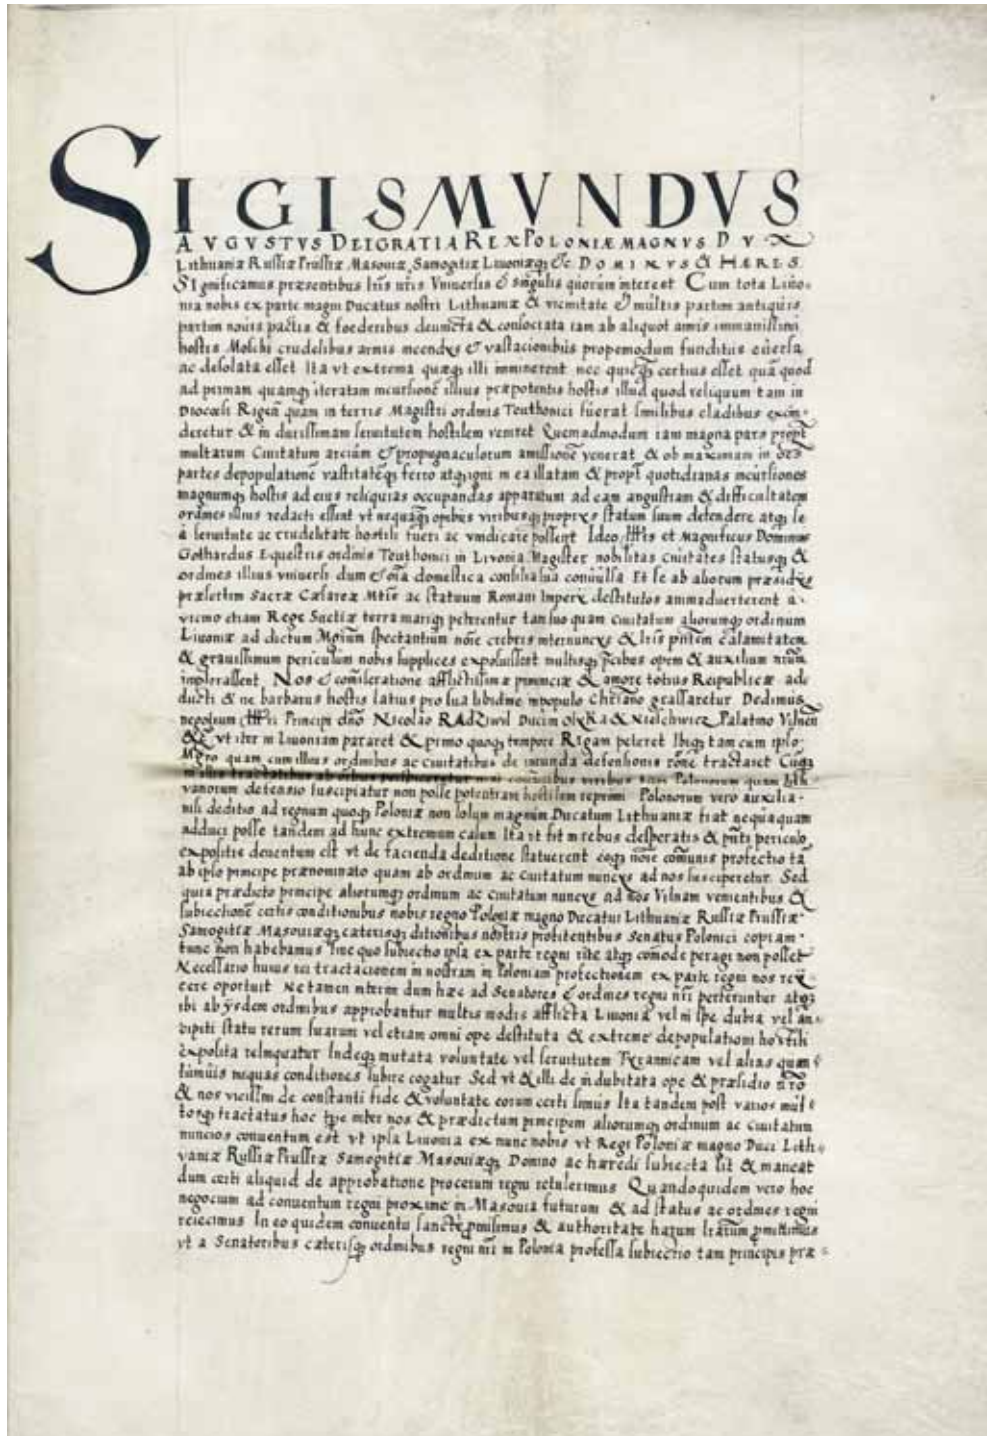 SIGISMVNDVS
AVGVSTVS DEI GRATIA REX POLONIÆ MAGNVS DVX
Lithuaniæ Russiæ Prussiæ Masouiæ, Samogitiæ Liuoniæq; &c DOMINVS & HÆRES.
Significamus præsentibus lris nris Vniuersis & singulis quorum interest Cum tota Liuo-
nia nobis ex parte magni Ducatus nostri Lithuaniæ & vicinitate & multis partim antiquis
partim nouis pactis & foederibus deuincta & consociata iam ab aliquot annis immanissimi
hostis Moschi crudelibus armis incendijs & vastacionibus propemodum funditus euersa
ac desolata esset Ita vt extrema quæq; illi imminerent nec quicq; certius esset quã quod
ad primam quamq; iteratam incursionẽ illius præpotentis hostis illud quod reliquum tam in
Diocœsi Rigen̄ quam in terris Magistri ordinis Teuthonici fuerat similibus cladibus excin-
deretur & in durissimam seruitutem hostilem veniret Quemadmodum iam magna pars propt̄
multarum Ciuitatum arcium & propugnaculorum amissionẽ venerat & ob maximam in oẽs
partes depopulationẽ vastitatẽq; ferro atq; igni in ea illatam & propt̄ quotidianas incursiones
magnumq; hostis ad eius reliquias occupandas apparatum ad eam angustiam & difficultatem
ordines illius redacti essent vt nequaq; opibus viribusq; proprijs statum suum defendere atq; se
à seruitute ac crudelitate hostili tueri ac vindicare possent Ideo Illris et Magnificus Dominus
Gothardus Equestris ordinis Teuthonici in Livonia Magister nobilitas ciuitates statusq; &
ordines illius vniuersi dum & oĩa domestica consilia sua conuulsa Et se ab aliorum præsidijs
præsertim Sacræ Cæsareæ Mtis ac statuum Romani Imperij destitutos animaduerterent a
vicino etiam Rege Suetiæ terra mariq; peterentur tam suo quam ciuitatum aliorumq; ordinum
Liuoniæ ad dictum Mgrum spectantium noĩe crebris internuncijs & lris pñtem calamitatem
& grauissimum periculum nobis supplices exposuissent multisq; pcibus opem & auxilium nrum
implorassent. Nos & comiseratione afflictissimæ prouinciæ & amore totius Reipublicæ ad-
ducti & ne barbarus hostis latius pro sua libidine in populo Chriano grassaretur Dedimus
negotium Illri Principi dño Nicolao RADZiwil Duci in olyka & Nieschwiez Palatino Vilneñ
&c vt iter in Liuoniam pararet & primo quoq; tempore Rigam peteret Ibiq; tam cum ipso
Mgro quam cum illius ordinibus ac ciuitatibus de ineunda defensionis roñe tractaret Cuq;
in illis tractatibus ab oibus perspiceretur nisi coibus viribus tam Polonorum quam Lith
vanorum defensio suscipiatur non posse potentiam hostilem reprimi Polonorum vero auxilia
nisi deditio ad regnum quoq; Poloniæ non solum magnum Ducatum Lithuaniæ fiat nequaquam
adduci posse tandem ad hunc extremum casum Ita vt fit in rebus desperatis & pñti periculo
expositis deuentum est vt de facienda deditione statuerent eoq; noĩe comunis profectio tã
ab ipso principe prænominato quam ab ordinum ac ciuitatum nuncijs ad nos susciperetur. Sed
quia prædicto principe aliorumq; ordinum ac ciuitatum nuncijs ad nos Vilnam venientibus &
subiectionẽ certis conditionibus nobis regno Poloniæ magno Ducatui Lithuaniæ Russiæ Prussiæ
Samogitiæ Masouiæq; cæterisq; ditionibus nostris profitentibus Senatus Polonici copiam
tunc non habebamus sine quo subiectio ipsa ex parte regni rite atq; comode peragi non posset
Necessario huius rei tractacionem in nostram in Poloniam profectionem ex parte regni nos reij-
cere oportuit Ne tamen interim dum hæc ad Senatores & ordines regni nri perferuntur atq;
ibi ab ijsdem ordinibus approbantur multis modis afflicta Liuonia vel in spe dubia vel an-
cipiti statu rerum suarum vel etiam omni ope destituta & extremẽ depopulationi hostili
exposita relinquatur Indeq; mutata voluntate vel seruitutem Tyrannicam vel alias quan-
tumuis iniquas conditiones subire cogatur Sed vt & illi de indubitata ope & præsidio nro
& nos vicissim de constanti fide & voluntate eorum certi simus Ita tandem post varios mul-
torq; tractatus hoc tpe inter nos & prædictum principem aliorumq; ordinum ac ciuitatum
nuncios conuentum est vt ipsa Liuonia ex nunc nobis vt Regi Poloniæ magno Duci Lith-
vaniæ Russiæ Prussiæ Samogitiæ Masouiæq; Domino ac hæredi subiecta sit & maneat
dum certi aliquid de approbatione procerum regni retulerimus Quandoquidem vero hoc
negocium ad conuentum regni proxime in Masouia futurum & ad status ac ordines regni
reiecimus In eo quidem conuentu sanctè pmisimus & authoritate harum lrarum pmittimus
vt a Senatoribus cæterisq; ordinibus regni nri in Polonia professa subiectio tam principis præ-